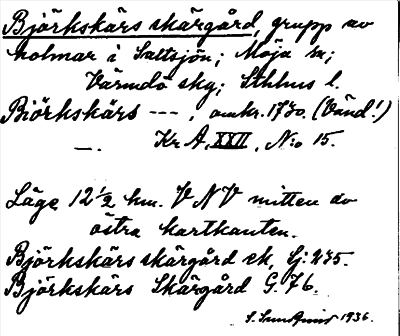 Björkskärs skärgård, grupp av
holmar i Saltsjön; Möja sn;
Värmdö skg; Sthlms l.
Biörkskärs ---; omkr. 1730. (Vänd!)
—. Kr A, XXII, N:o 15.
Läge 12 1/2 km. V N V mitten av
östra kartkanten.
Björkskärs skärgård ek, Sj: 235.
Björkskärs Skärgård G. 76.
1936.